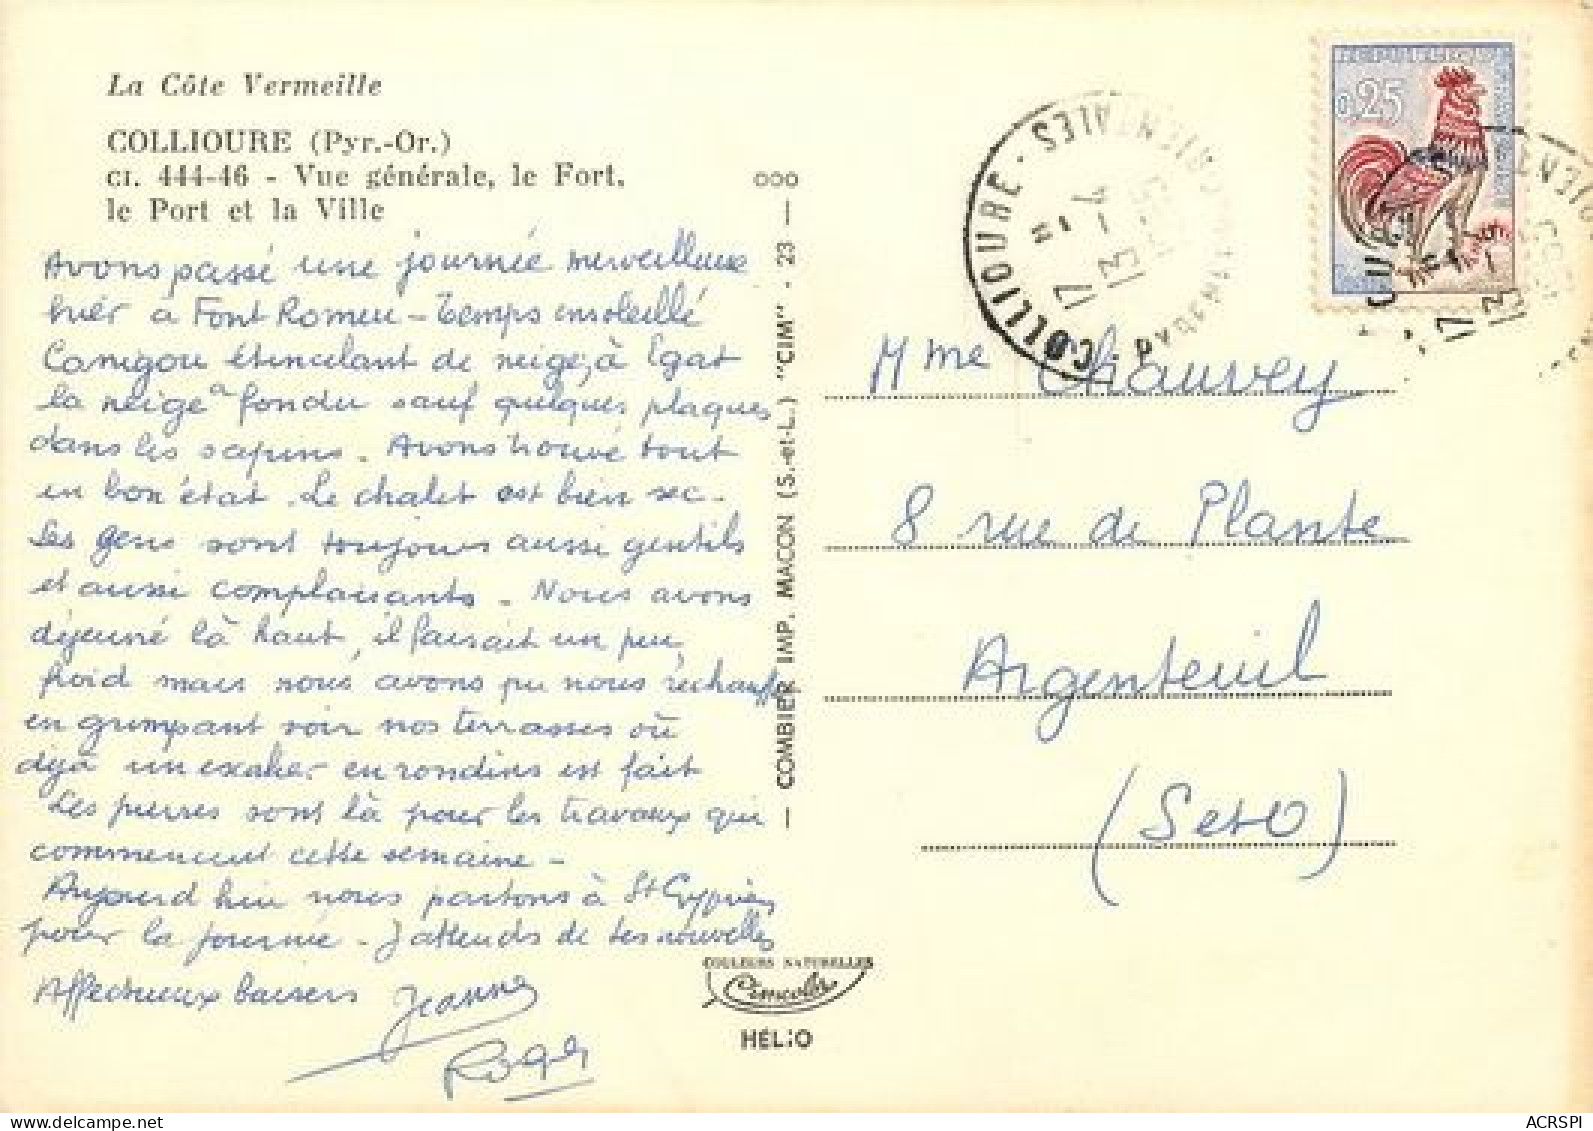 La Côte Vermeille
COLLIOURE (Pyr.-Or.)
CI. 444-46 - Vue générale, le Fort,
le Port et la Ville
Avons passé une journée merveilleuse
hier à Font Romeu - Temps ensoleillé
Canigou étincelant de neige, à Egat
la neige a fondu sauf quelques plaques
dans les sapins. Avons trouvé tout
en bon état. Le chalet est bien sec.
Les gens sont toujours aussi gentils
et aussi complaisants. Nous avons
déjeuné là haut, il faisait un peu
froid mais nous avons pu nous réchauffer
en grimpant voir nos terrasses où
déjà un escalier en rondins est fait
Les pierres sont là pour les travaux qui
commencent cette semaine -
Aujourd hui nous partons à St Cyprien
pour la journée. J attends de tes nouvelles
Affectueux baisers Jeanne
Roger
000
— COMBIER IMP. MACON (S.-et-L.) "CIM" - 23 —
COULEURS NATURELLES
Cimcolor
HÉLIO
REPUBLIQUE
0,25
COLLIOURE - PYRENEES ORIENTALES
17 H
13 - 4
Mme Chauvey
8 rue de Plante
Argenteuil
(Set O)
ACRSPI